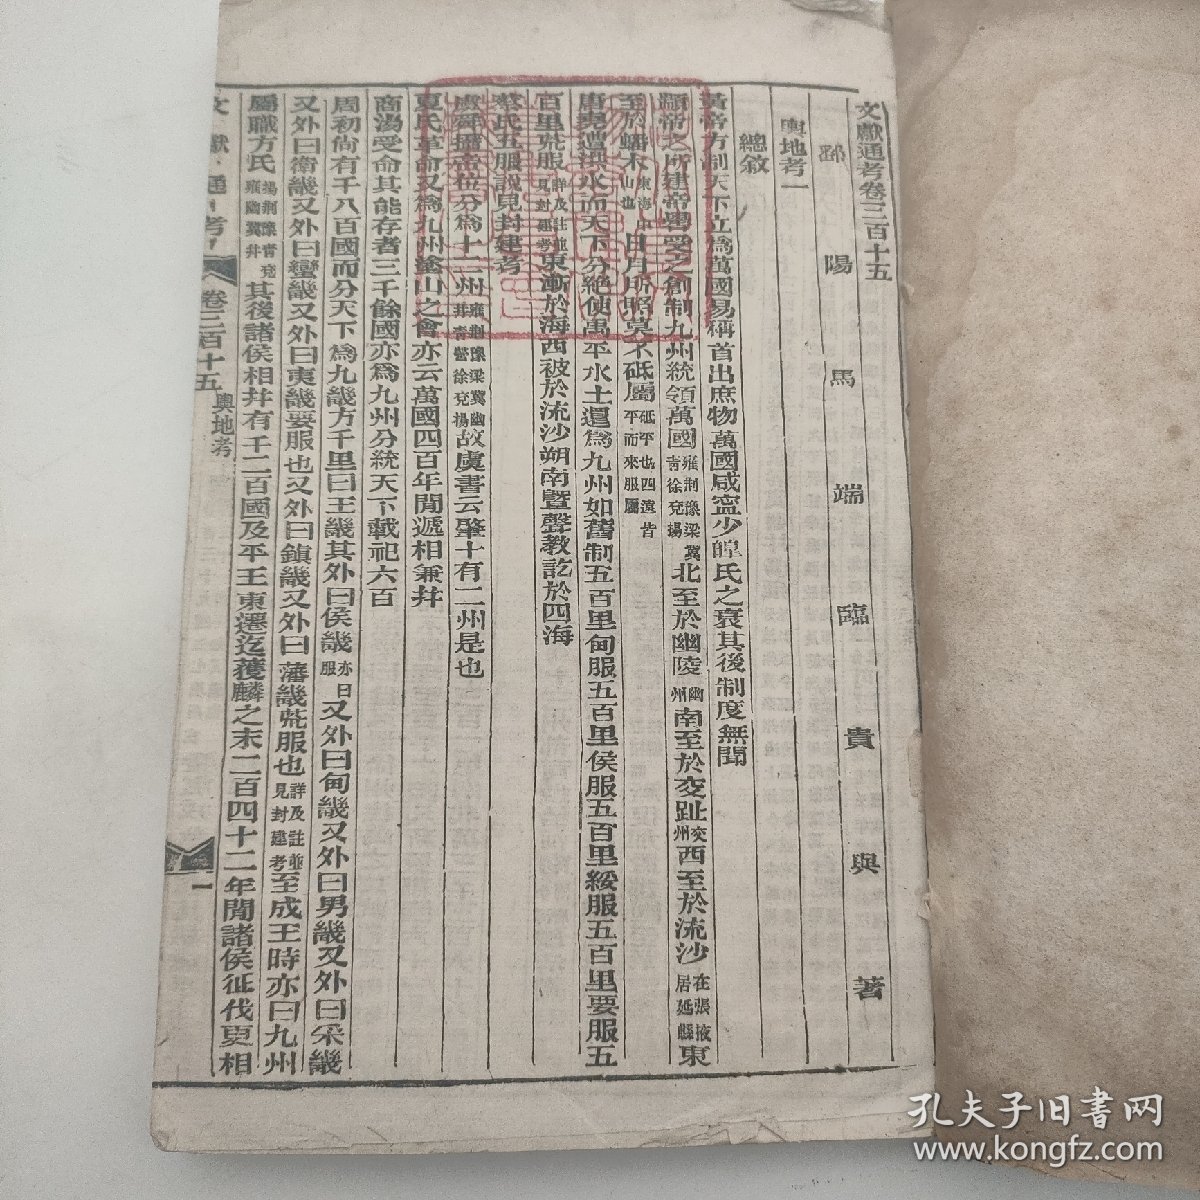 文獻通考卷三百十五
鄱陽馬端臨貴與著
輿地考一
總敘
黃帝方制天下立爲萬國易稱首出庶物萬國咸寧少皥氏之衰其後制度無聞
顓帝之所建帝嚳受之創制九州統領萬國雍荆豫梁冀青徐兗揚北至於幽陵幽州南至於交趾交州西至於流沙在張掖居延縣東
至於蟠木東海中山也日月所照莫不砥屬砥平也四遠皆平而來服屬
唐堯遭洪水而天下分絕使禹平水土還爲九州如舊制五百里甸服五百里侯服五百里綏服五百里要服五
百里荒服詳及註並見封建考東漸於海西被於流沙朔南暨聲教訖於四海
蔡氏五服說見封建考
虞舜攝帝位分爲十二州雍荆豫梁冀幽并青營徐兗揚故虞書云肇十有二州是也
夏氏革命又爲九州塗山之會亦云萬國四百年閒遞相兼幷
商湯受命其能存者三千餘國亦爲九州分統天下載祀六百
周初尚有千八百國而分天下爲九畿方千里曰王畿其外曰侯畿亦曰服又外曰甸畿又外曰男畿又外曰采畿
又外曰衞畿又外曰蠻畿又外曰夷畿要服也又外曰鎮畿又外曰藩畿荒服也詳及註並見封建考至成王時亦曰九州
屬職方氏揚荆豫青兗雍幽冀幷其後諸侯相幷有千二百國及平王東遷迄獲麟之末二百四十二年閒諸侯征伐更相
文獻通考 卷三百十五 輿地考 一
孔夫子旧书网
www.kongfz.com